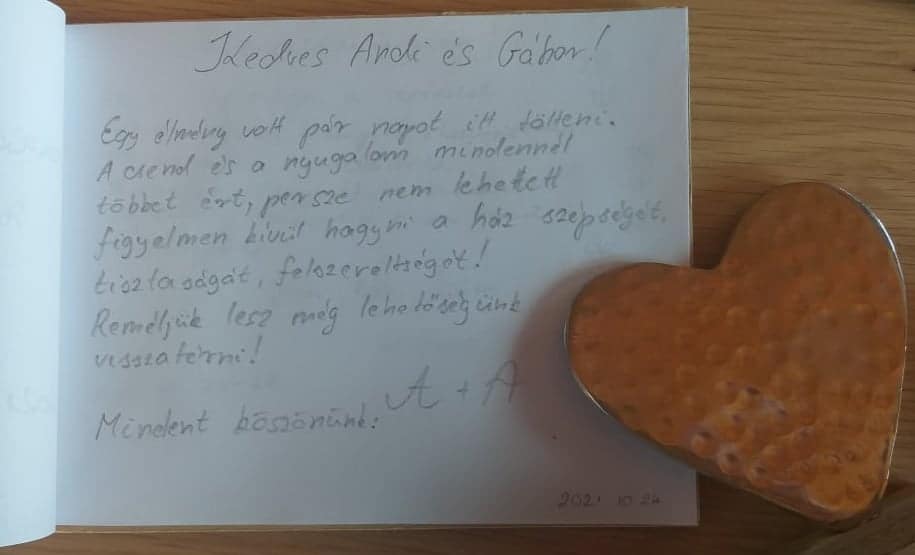 Kedves Andi és Gábor!
Egy élmény volt pár napot itt tölteni.
A csend és a nyugalom mindennél
többet ért, persze nem lehetett
figyelmen kívül hagyni a ház szépségét,
tisztaságát, felszereltségét!
Reméljük lesz még lehetőségünk
visszatérni!
Mindent köszönünk: A + A
2021 10 24